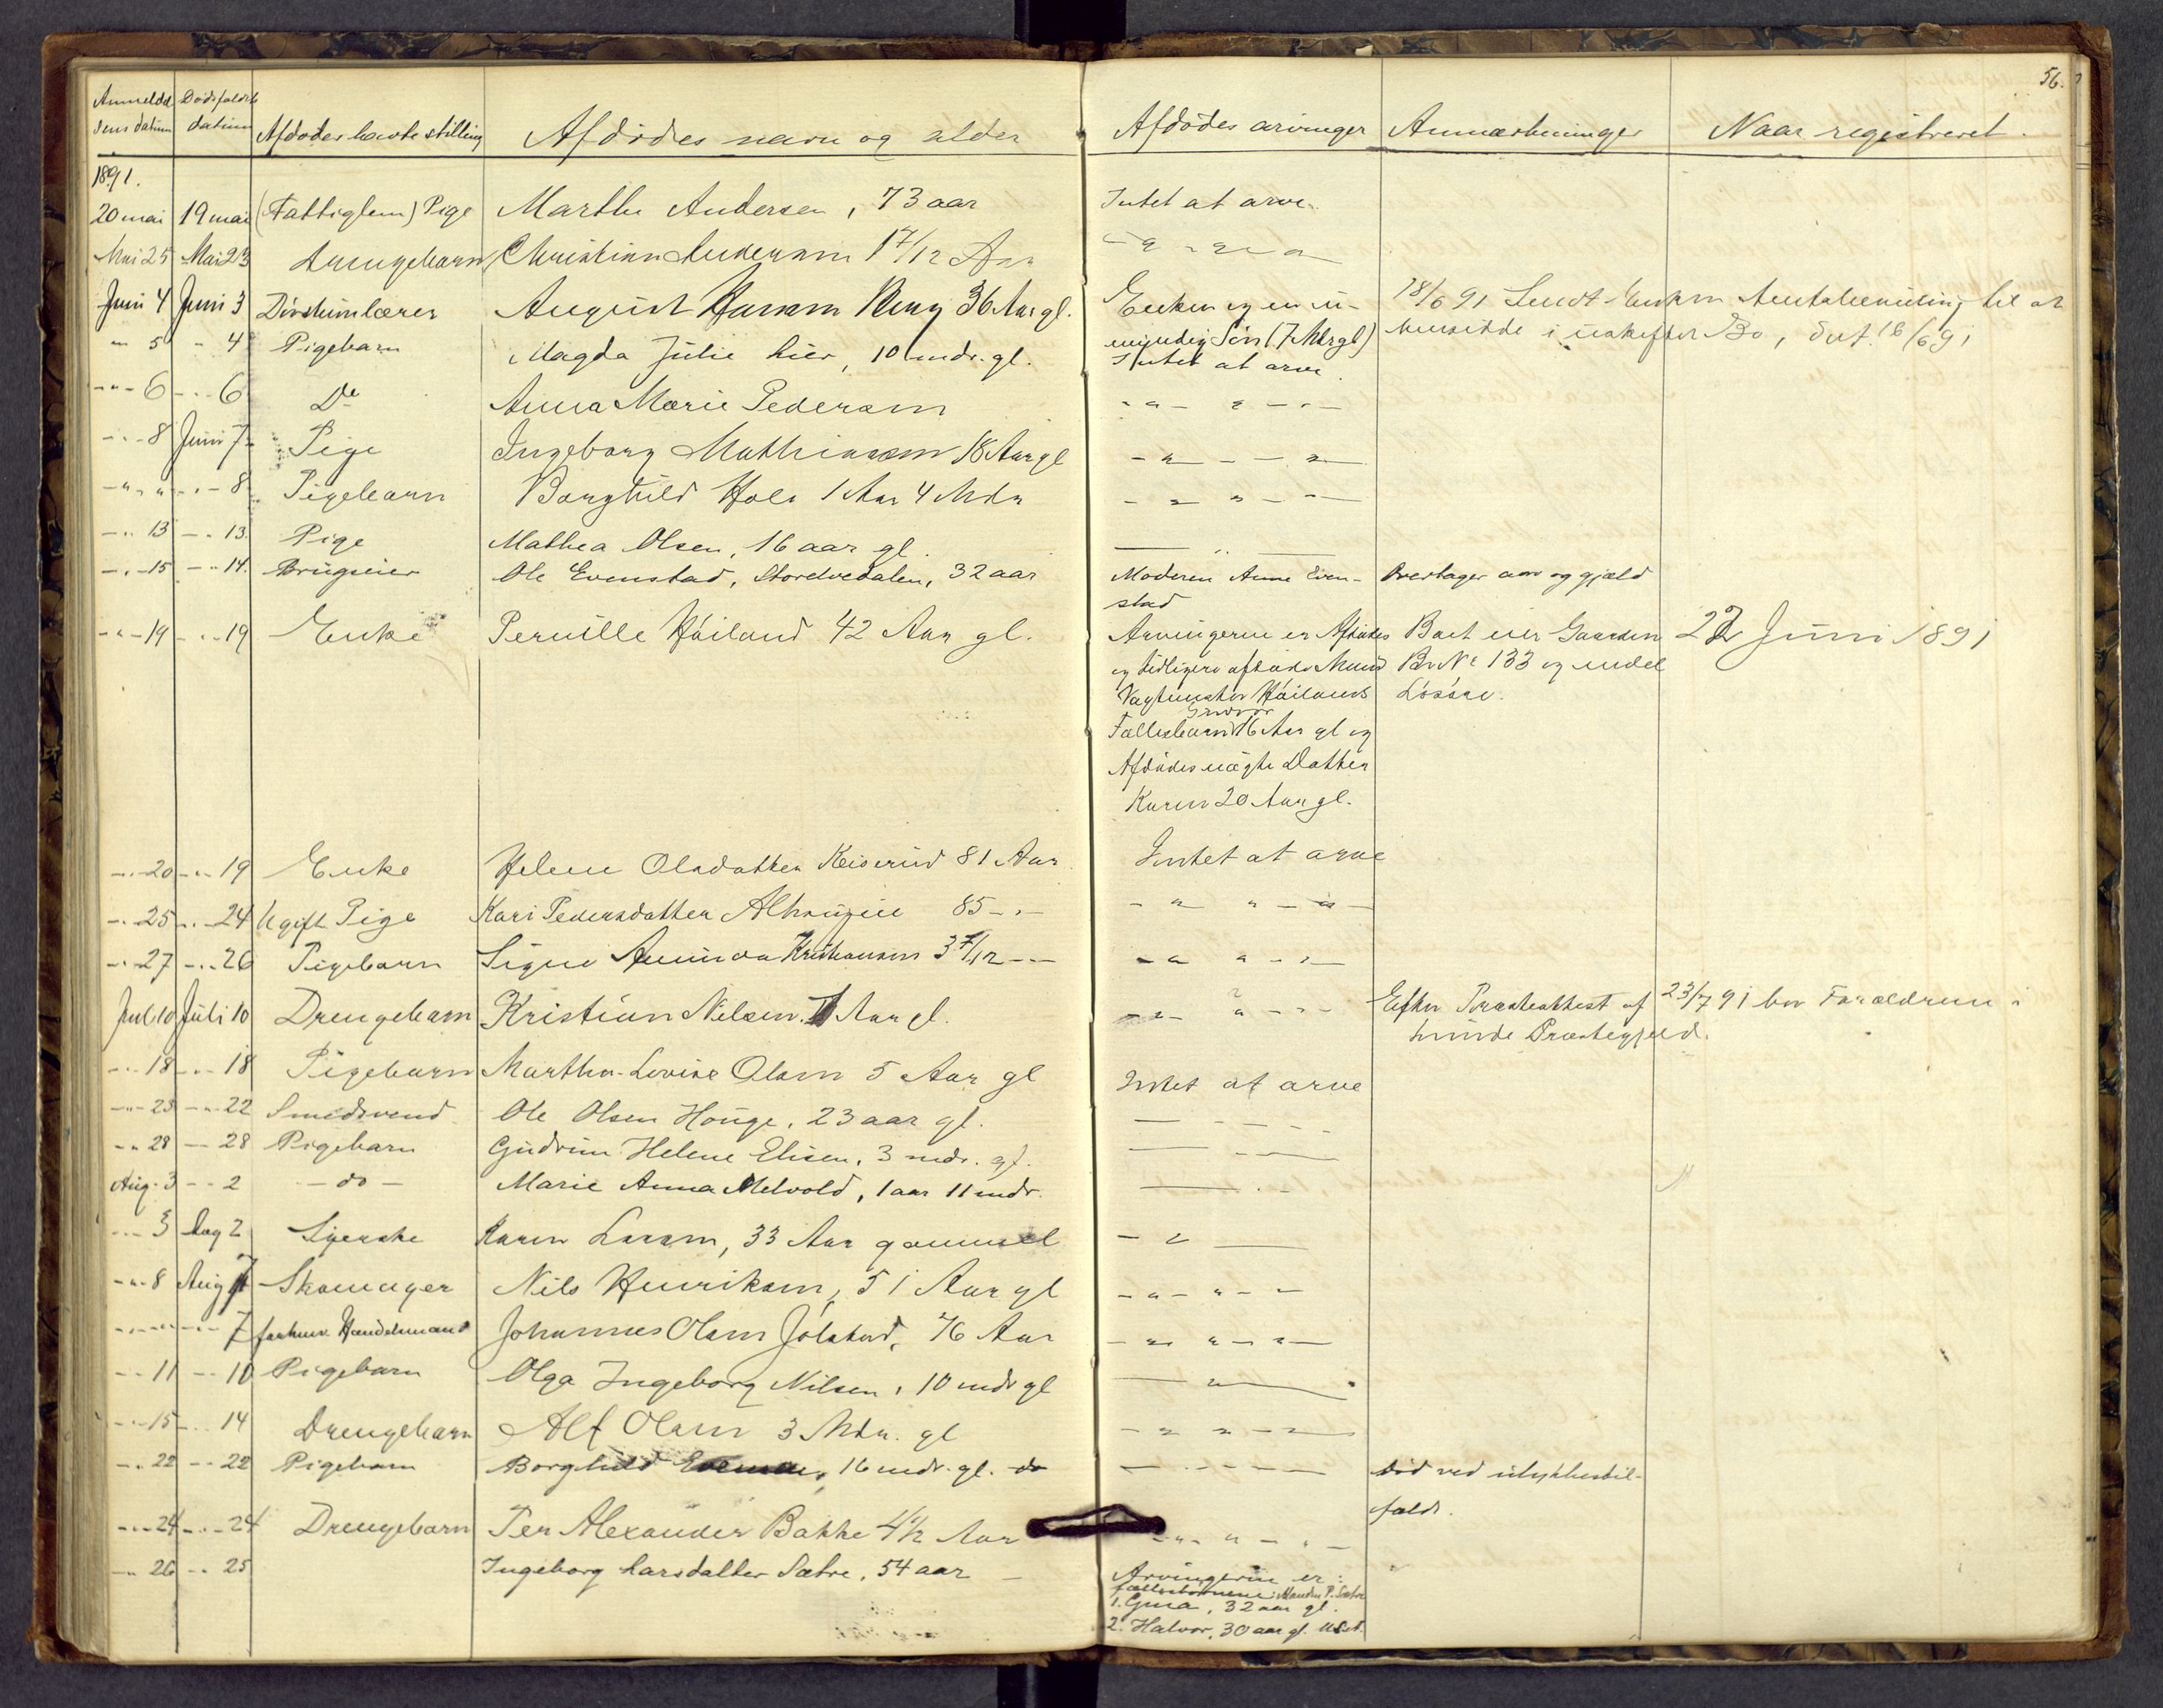 56.
Anmeldel- Dødsfaldets
sens datum datum Afdødes havte stilling Afdødes navn og alder Afdødes arvinger Anmærkninger Naar registreret.
1891.
20 mai 19 mai (Fattiglem) Pige Marthe Andersen, 73 aar Intet at arve.
Mai 25 Mai 23 Drengebarn Christian Andersen 1 7/12 Aar - " - " -
Juni 4 Juni 3 August Hansen 36 Aar gl. Enken og en u- 18/6 91 Sendt Enken til at
myndig Søn (7 Aar gl) hensidde i uskiftet Bo, dat. 16/6 91
" 5 " 4 Pigebarn Magda Julie Lier, 10 mdr. gl. Intet at arve.
- " - 6 - " 6 Do Anna Marie Pedersen - " - " - " -
- " - 8 Juni 7 Pige Ingeborg Mathiassen 18 Aar gl - " - - " -
- " " " - " - 8 Pigebarn Borghild Hols 1 Aar 4 Mdr - " " - " -
- " 13 - " 13. Pige Mathea Olsen, 16 aar gl. - " -
- " - 15 - " 14. Brugseier Ole Evenstad, Storelvedalen, 32 aar Moderen Anne Even- Overtager arv og gjæld
stad
- " - 19 - " - 19 Enke Pernille Høiland 42 Aar gl. Arvingerne er Afdødes Boet eier Gaarden 22 Juni 1891
og tidligere afdøde Mand Br No 133 og endel
Vagtmester Høilands Løsøre.
Fællesbarn 16 Aar gl og
Afdødes uægte Datter
Karen 20 Aar gl.
- " - 20 - " - 19 Enke Helene Olsdatter Keiserud 81 Aar Intet at arve
- " - 25 - " - 24 Ugift Pige Kari Pedersdatter 85 - " - - " " - " -
- " 27 - " - 26 Pigebarn Signe Kristiansen 3 7/12 - " - - " " - " -
Juli 10 Juli 10 Drengebarn Kristian Nilsen Aar gl. - " - " - " - Efter Præsteattest af 23/7 91 bor Forældrene i
Præstegjeld.
- " 18 - " - 18 Pigebarn Martha Lovise Olsen 5 Aar gl Intet at arve
- " - 23 - " - 22 Smedsvend Ole Olsen Houge, 23 aar gl. - " -
- " 28 - " - 28 Pigebarn Gudrun Helene Elisen, 3 mdr. gl. - " -
Aug. 3 - " 2 - do - Marie Anna Melvold, 1 aar 11 mdr. - " -
- " - 3 Aug 2 Syerske Karen Larsen, 33 Aar gammel - " -
- " - 8 Aug 7 Skomager Nils Henriksen, 51 Aar gl - " - " - " -
- " - " - " - 7 forhenv. Handelsmand Johannes Olsen Jølstad, 76 Aar - " " - " -
- " 11 - " 10 Pigebarn Olga Ingeborg Nilsen, 10 mdr gl - " -
- " - 15 - " 14 Drengebarn Alf Olsen 3 Mdr. gl - " " - " -
- " 22 - " 22 Pigebarn Borghild 16 mdr. gl. do - " - død ved ulykkestil-
fælde.
- " - 24 - " - 24 Drengebarn Per Alexander Bakke 4 1/2 Aar - " " - " -
- " 26 - " 25 Ingeborg Larsdatter Sætre, 54 aar Arvingerne er:
fællesbørnene: Manden P. Sætre
1. Gina, 32 aar gl.
2. Halvor, 30 aar gl.